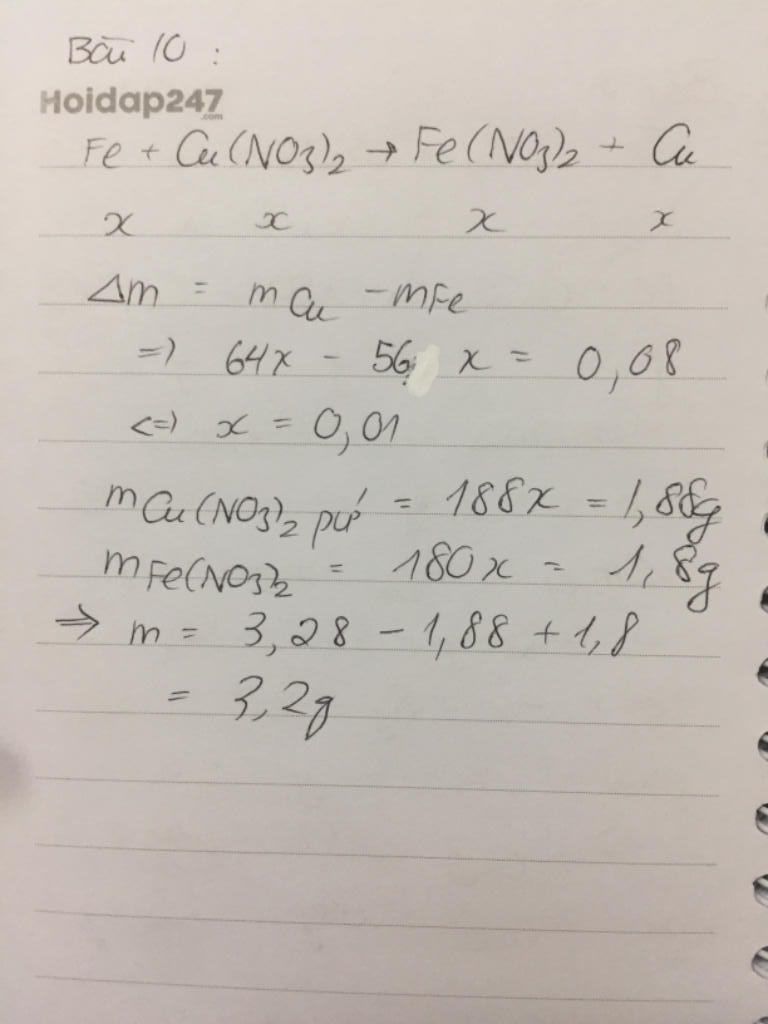 Bài 10 :
Hoidap247
.com
Fe + Cu(NO3)2 → Fe(NO3)2 + Cu
x x x x
Δm = mCu - mFe
=) 64x - 56 x = 0,08
<=) x = 0,01
mCu(NO3)2 pứ = 188x = 1,88g
mFe(NO3)2 = 180x = 1,8g
⇒ m = 3,28 - 1,88 + 1,8
= 3,2g